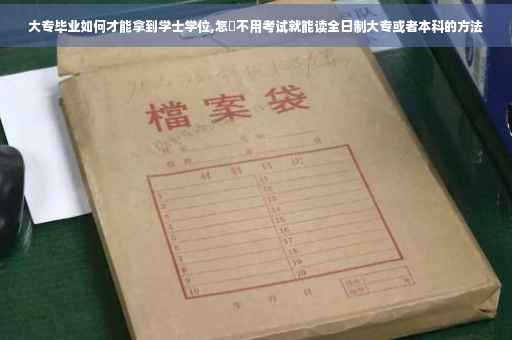 大专毕业如何才能拿到学士学位,怎▯不用考试就能读全日制大专或者本科的方法
檔案袋
材料目次
1 11
2 12
3 13
4 14
5 15
6 16
7 17
8 18
9 19
10 20
年 月 日